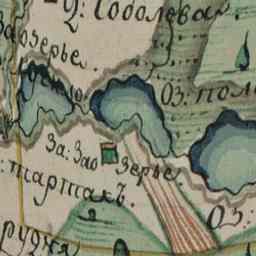 Ц: Соболева.
Заозерье.
Оз: пол
За: Зао
Зерье.
: тартахъ.
Оз:
рудня